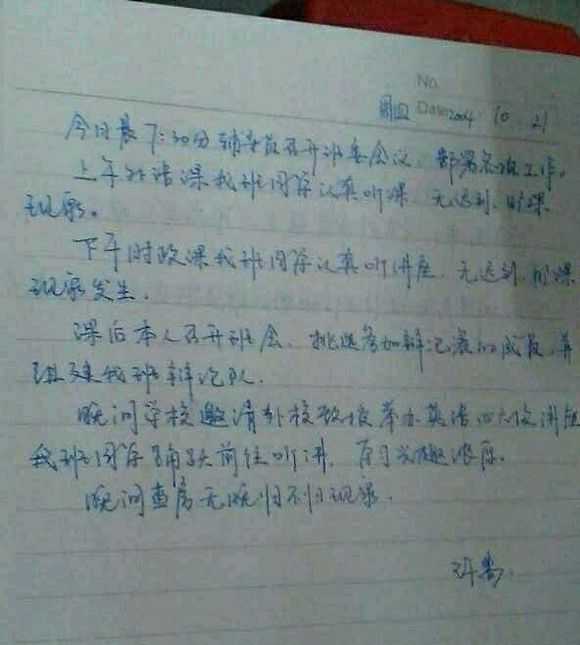 No.
周四 Date 2004. 10. 21
今日晨7:30分辅导员召开班委会议,部署各项工作。
上午外语课我班同学认真听课,无迟到、旷课
现象。
下午时政课我班同学认真听讲座,无迟到、旷课
现象发生。
课后本人召开班会,挑选参加辩论赛的成员,并
组建我班辩论队。
晚间学校邀请外校教授举办英语四六级
我班同学踊跃前往听讲,兴趣浓厚。
晚间查房无晚归不归现象。